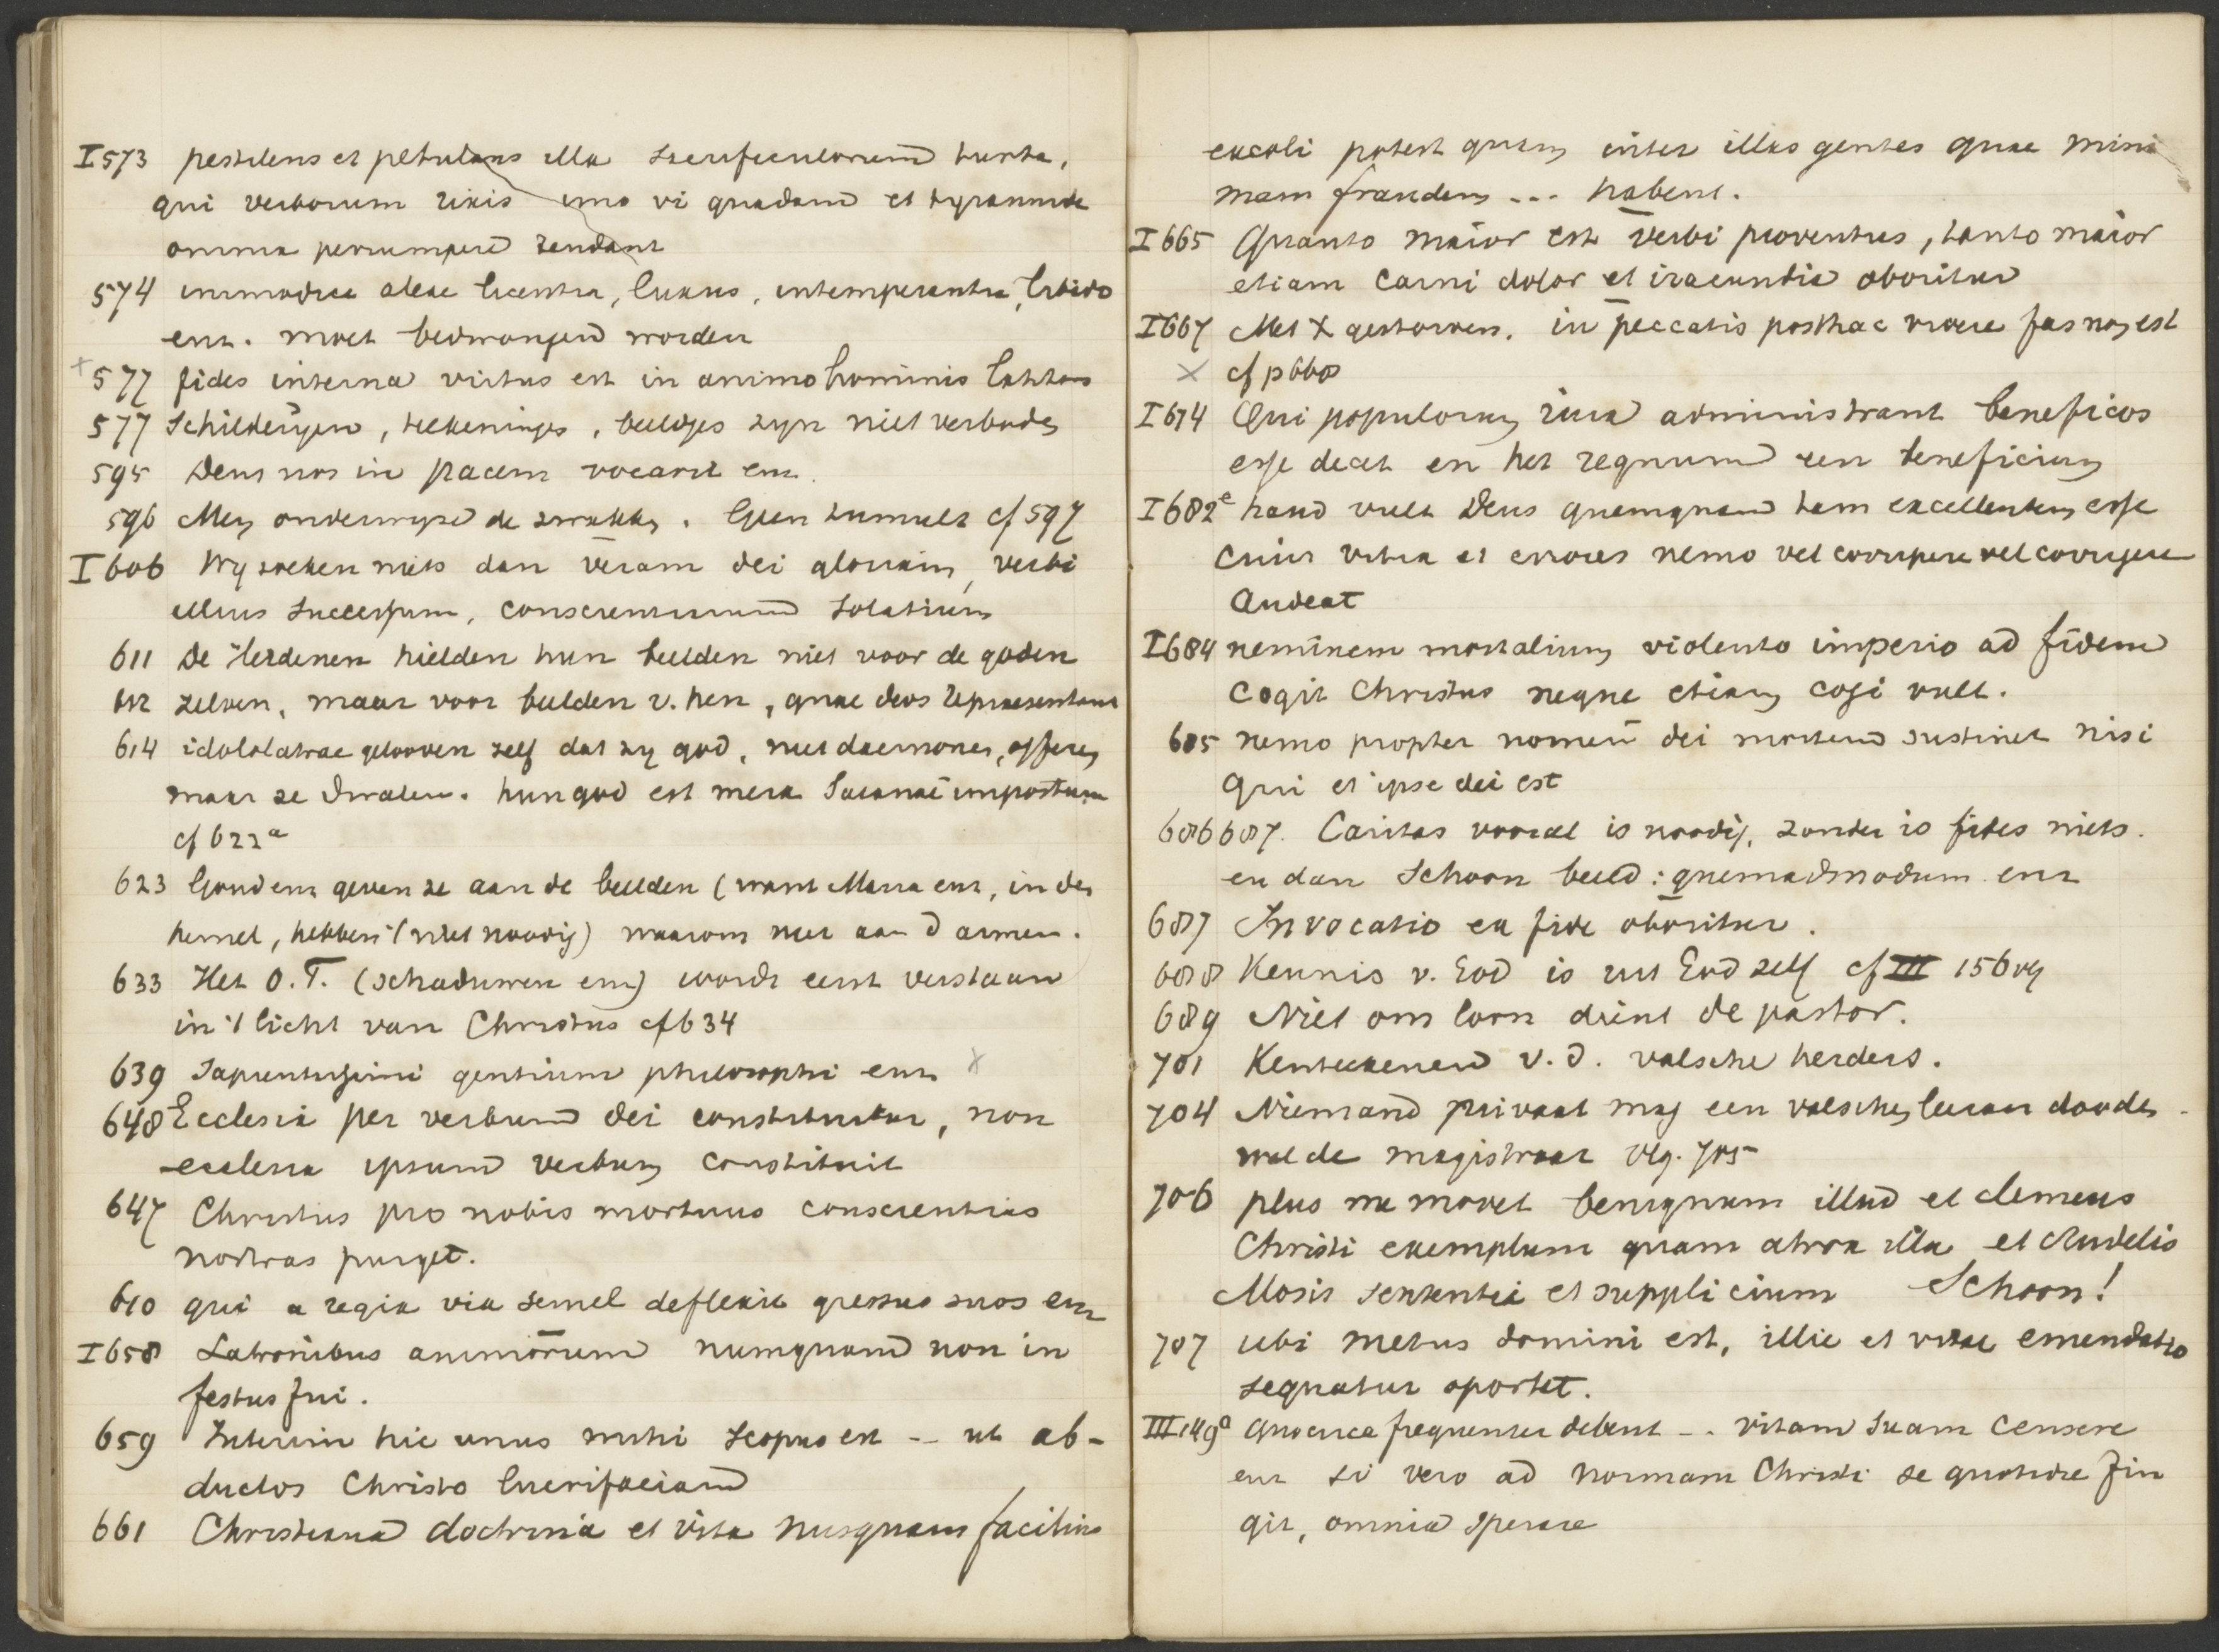 I 573 pestilens et petulans illa sacrificulorum turba,
qui verborum rixis imo vi quadam et tyrannide
omnia perrumpere tendant
574 immodica aleae licentia, luxus, intemperantia, libido
enz. moet bedwongen worden
+ 577 fides interna virtus est in animo hominis latitans
577 Schilderijen, teekeningen, beeldjes zijn niet verboden
595 Deus nos in pacem vocavit enz.
596 Men onderwijze de zwakken. Geen tumult cf 597
I 606 Wij zoeken niets dan veram dei gloriam, verbi
illius successum, conscientiarum solatium
611 De Heidenen hielden hun beelden niet voor de goden
612 zelven, maar voor beelden v. hen, quae deos repraesentant
614 idololatrae gelooven zelf dat zij god, niet daemones, offeren
maar ze dwalen. hun god est mera Satanae impostura
cf 622a
623 Goud enz geven ze aan de beelden (want Maria enz, in den
hemel, hebben 't niet noodig) waarom niet aan d armen.
633 Het O.T. (schaduwen enz) wordt eerst verstaan
in 't licht van Christus cf 634
639 Sapientissimi gentium philosophi enz. x
648 Ecclesia per verbum dei constituitur, non
ecclesia ipsum verbum constituit
647 Christus pro nobis mortuus conscientias
nostras purget.
610 qui a regia via semel deflexit gressus suos enz
I 658 Latronibus animorum numquam non in
festus fui.
659 Interim hic unus mihi scopus est -- ut ab-
ductos Christo lucrifaciam
661 Christiana doctrina et vita nusquam facilius
excoli potest quam inter illas gentes quae mini
mam fraudem ... habent.
I 665 Quanto maior est verbi proventus, tanto maior
etiam carni dolor et iracundia oboritur
I 667 Met X gestorven. in peccatis posthac vivere fas non est
x cf p 668
I 674 Qui populorum iura administrant beneficos
esse decet en het regnum een beneficium
I 682e haud vult Deus quemquam tam excellentem esse
cuius vitia et errores nemo vel corripere vel corrigere
audeat
I 684 neminem mortalium violento imperio ad fidem
cogit Christus neque etiam cogi vult.
685 nemo propter nomen dei mortem sustinet nisi
qui et ipse dei est
686 687. Caritas vooral is noodig, zonder is fides niets.
en dan schoon beeld: quemadmodum enz
687 Invocatio ex fide oboritur.
688 Kennis v. God is uit God zelf cf III 156 vg
689 Niet om loon dient de pastor.
701 Kenteekenen v. d. valsche herders.
704 Niemand privaat mag een valschen leeraar dooden
wel de magistraat vlg. 705
706 plus me movet benignum illud et clemens
Christi exemplum quam atrox illa et crudelis
Mosis sententia et supplicium Schoon!
707 ubi metus domini est, illic et vitae emendatio
sequatur oportet.
III 149a Quocirca frequenter debent -. vitam suam censere
enz si vero ad normam Christi se quotidie fin
git, omnia sperare